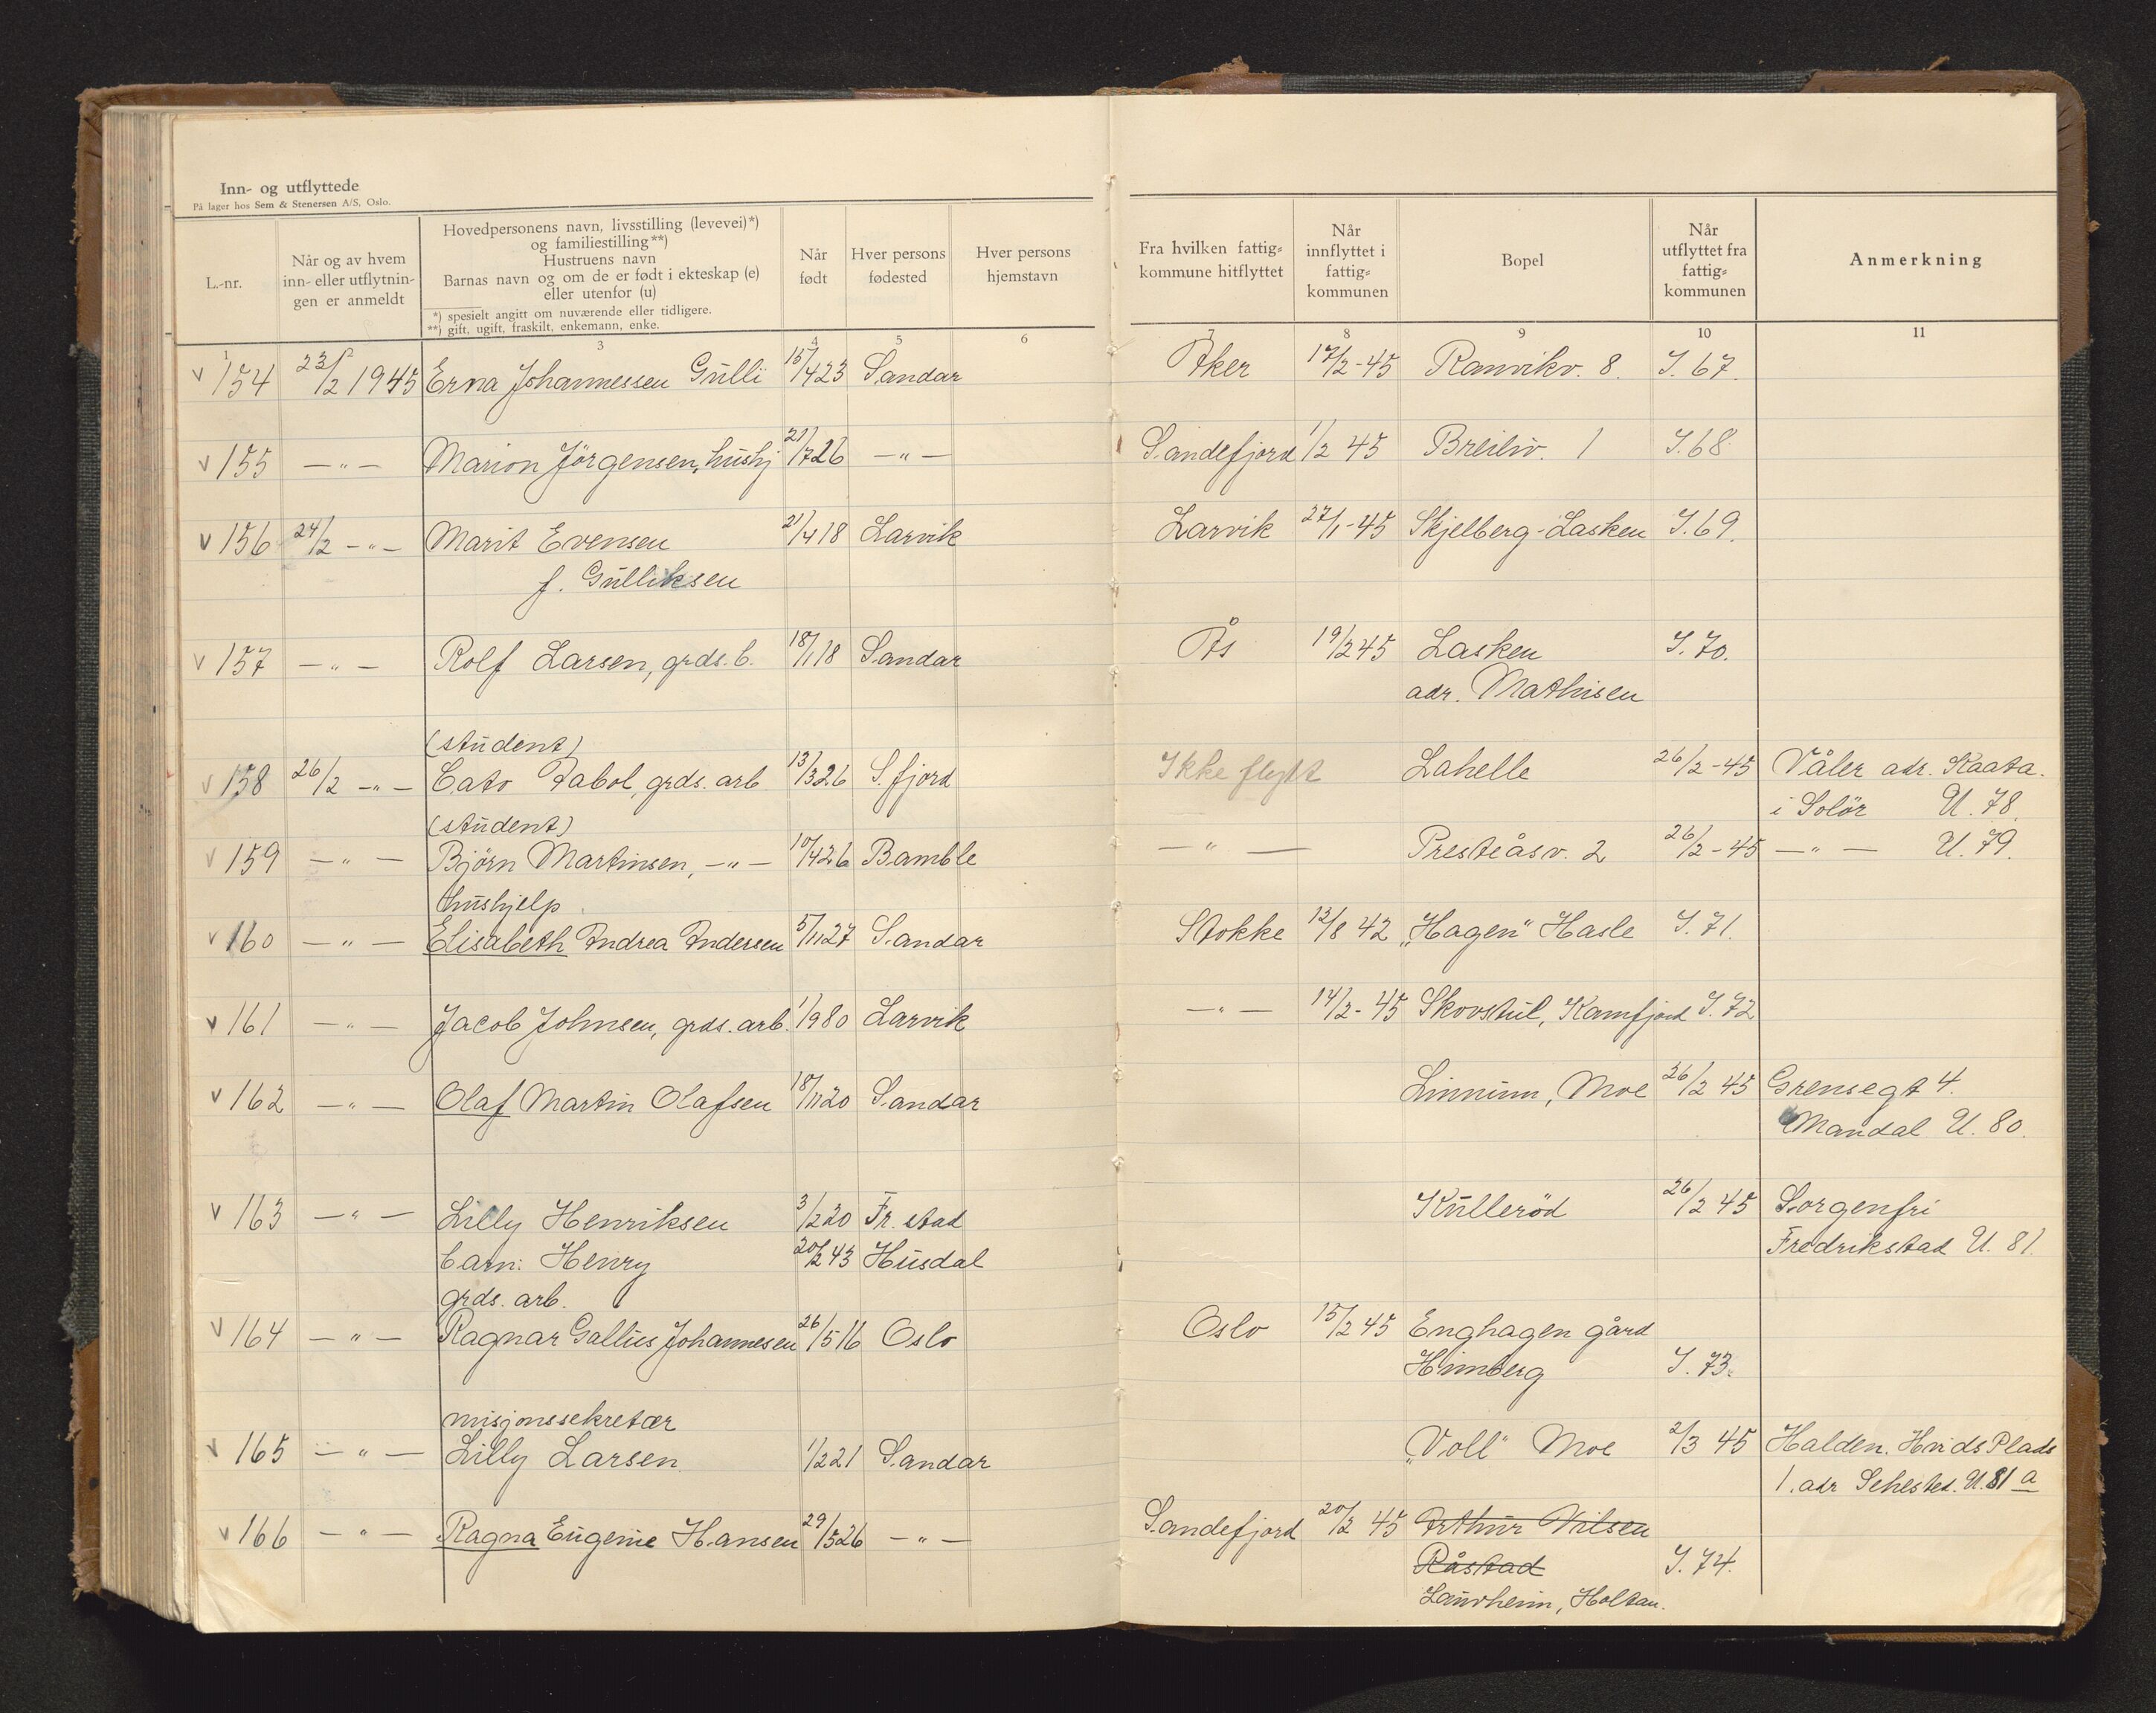 Inn- og utflyttede
På lager hos Sem & Stenersen A/S, Oslo.
L.-nr.
Når og av hvem
inn- eller utflytnin-
gen er anmeldt
Hovedpersonens navn, livsstilling (levevei)*)
og familiestilling**)
Hustruens navn
Barnas navn og om de er født i ekteskap (e)
eller utenfor (u)
*) spesielt angitt om nuværende eller tidligere.
**) gift, ugift, fraskilt, enkemann, enke.
Når
født
Hver persons
fødested
Hver persons
hjemstavn
Fra hvilken fattig-
kommune hitflyttet
Når
innflyttet i
fattig-
kommunen
Bopel
Når
utflyttet fra
fattig-
kommunen
Anmerkning
1 2 3 4 5 6 7 8 9 10 11
v 154 23/2 1945 Erna Johannessen Gulli 15/4 23 Sandar Aker 17/2-45 Ranvikv. 8. I. 67.
v 155 —"— Marion Jörgensen, hushj 21/7 26 —"— Sandefjord 1/2 45 Breiliv. 1 I. 68
v 156 24/2 —"— Marit Evensen 21/4 18 Larvik Larvik 27/1-45 Skjelberg-Lasken I. 69.
f. Gulliksen
v 157 —"— Rolf Larsen, grds. b. 18/1 18 Sandar Ås 19/2 45 Lasken I. 70.
adr. Mathisen
(student)
v 158 26/2 —"— Cato Tabol, grds. arb 13/3 26 S.fjord Ikke flytt Lahelle 26/2-45 Våler adr. Kaata.
i Solör U. 78.
(student)
v 159 —"— Björn Martinsen, —"— 10/4 26 Bamble —"— Presteåsv. 2 26/2-45 —"— U. 79.
hushjelp
v 160 —"— Elisabeth Andrea Andersen 5/11 27 Sandar Stokke 12/8 42 „Hagen" Hasle I. 71.
v 161 —"— Jacob Johnsen, grds. arb. 1/9 80 Larvik —"— 14/2-45 Skovstul, Kamfjord I. 72
v 162 —"— Olaf Martin Olafsen 18/11 20 Sandar Linnum, Moe 26/2 45 Grensegt 4.
Mandal U. 80.
v 163 —"— Lilly Henriksen 3/2 20 Fr. stad Kulleröd 26/2 45 Sorgenfri
barn: Henry 20/2 43 Husdal Fredrikstad U. 81.
grds. arb.
v 164 —"— Ragnar Gallus Johannesen 26/5 16 Oslo Oslo 15/2 45 Enghagen gård
Himberg I. 73.
misjonssekretær
v 165 —"— Lilly Larsen 1/2 21 Sandar „Voll" Moe 2/3 45 Halden. Hvids Plads
1. adr Sehested. U. 81 a
v 166 —"— Ragna Eugenie Hansen 29/5 26 —"— Sandefjord 20/2 45 Arthur Nilsen
Råstad I. 74.
Laurheim, Holtan.